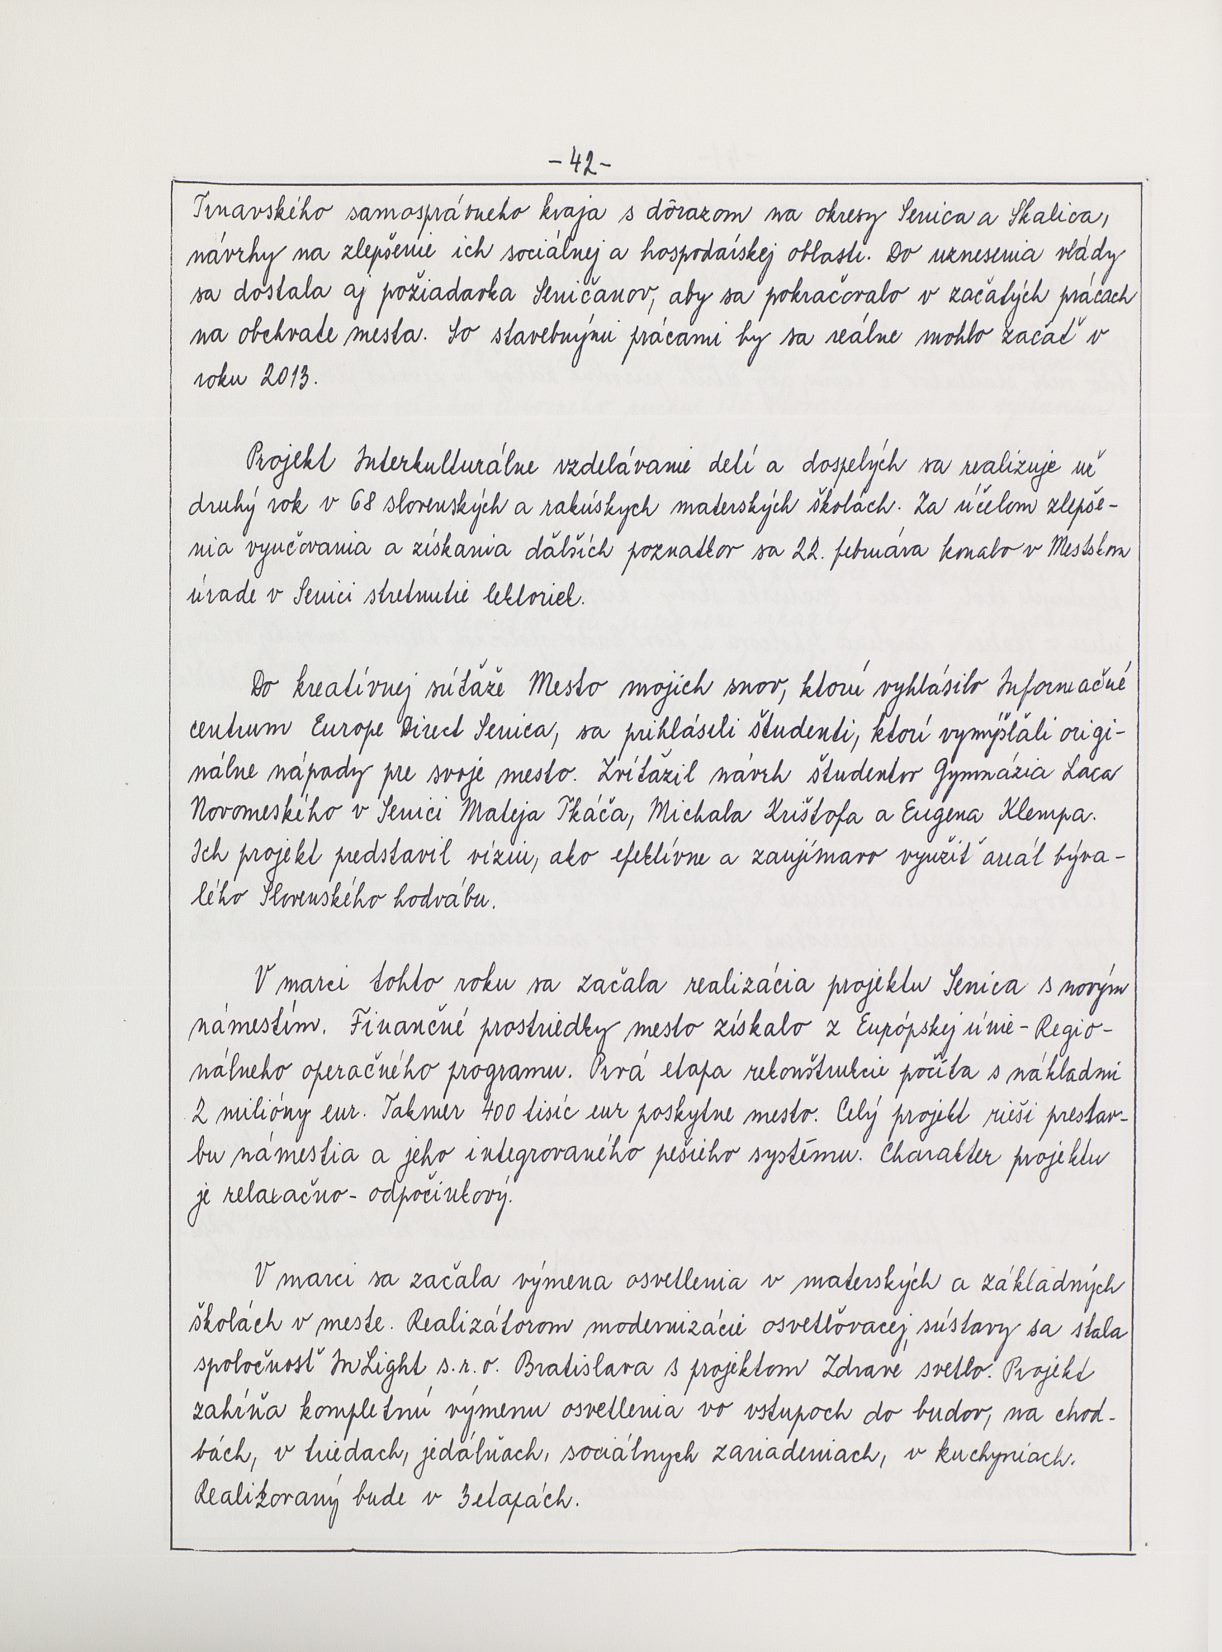 -42-
Trnavského samosprávneho kraja s dôrazom na okresy Senica a Skalica,
návrhy na zlepšenie ich sociálnej a hospodárskej oblasti. Do uznesenia vlády
sa dostala aj požiadavka Seničanov, aby sa pokračovalo v začatých prácach
na obchvate mesta. So stavebnými prácami by sa reálne mohlo začať v
roku 2013.
Projekt Interkulturálne vzdelávanie detí a dospelých sa realizuje už
druhý rok v 68 slovenských a rakúskych materských školách. Za účelom zlepše-
nia vyučovania a získania ďalších poznatkov sa 22. februára konalo v Mestskom
úrade v Senici stretnutie lektoriek.
Do kreatívnej súťaže Mesto mojich snov, ktorú vyhlásilo Informačné
centrum Europe Direct Senica, sa prihlásili študenti, ktorí vymýšľali origi-
nálne nápady pre svoje mesto. Zvíťazil návrh študentov Gymnázia Laca
Novomeského v Senici Mateja Tkáča, Michala Krištofa a Eugena Klempa.
Ich projekt predstavil víziu, ako efektívne a zaujímavo využiť areál býva-
lého Slovenského hodvábu.
V marci tohto roku sa začala realizácia projektu Senica s novým
námestím. Finančné prostriedky mesto získalo z Európskej únie - Regio-
nálneho operačného programu. Prvá etapa rekonštrukcie počíta s nákladmi
2 milióny eur. Takmer 400 tisíc eur poskytne mesto. Celý projekt rieši prestav-
bu námestia a jeho integrovaného pešieho systému. Charakter projektu
je relaxačno - odpočinkový.
V marci sa začala výmena osvetlenia v materských a základných
školách v meste. Realizátorom modernizácie osvetľovacej sústavy sa stala
spoločnosť InLight s.r.o. Bratislava s projektom Zdravé svetlo. Projekt
zahŕňa kompletnú výmenu osvetlenia vo vstupoch do budov, na chod-
bách, v triedach, jedálňach, sociálnych zariadeniach, v kuchyniach.
Realizovaný bude v 3 etapách.